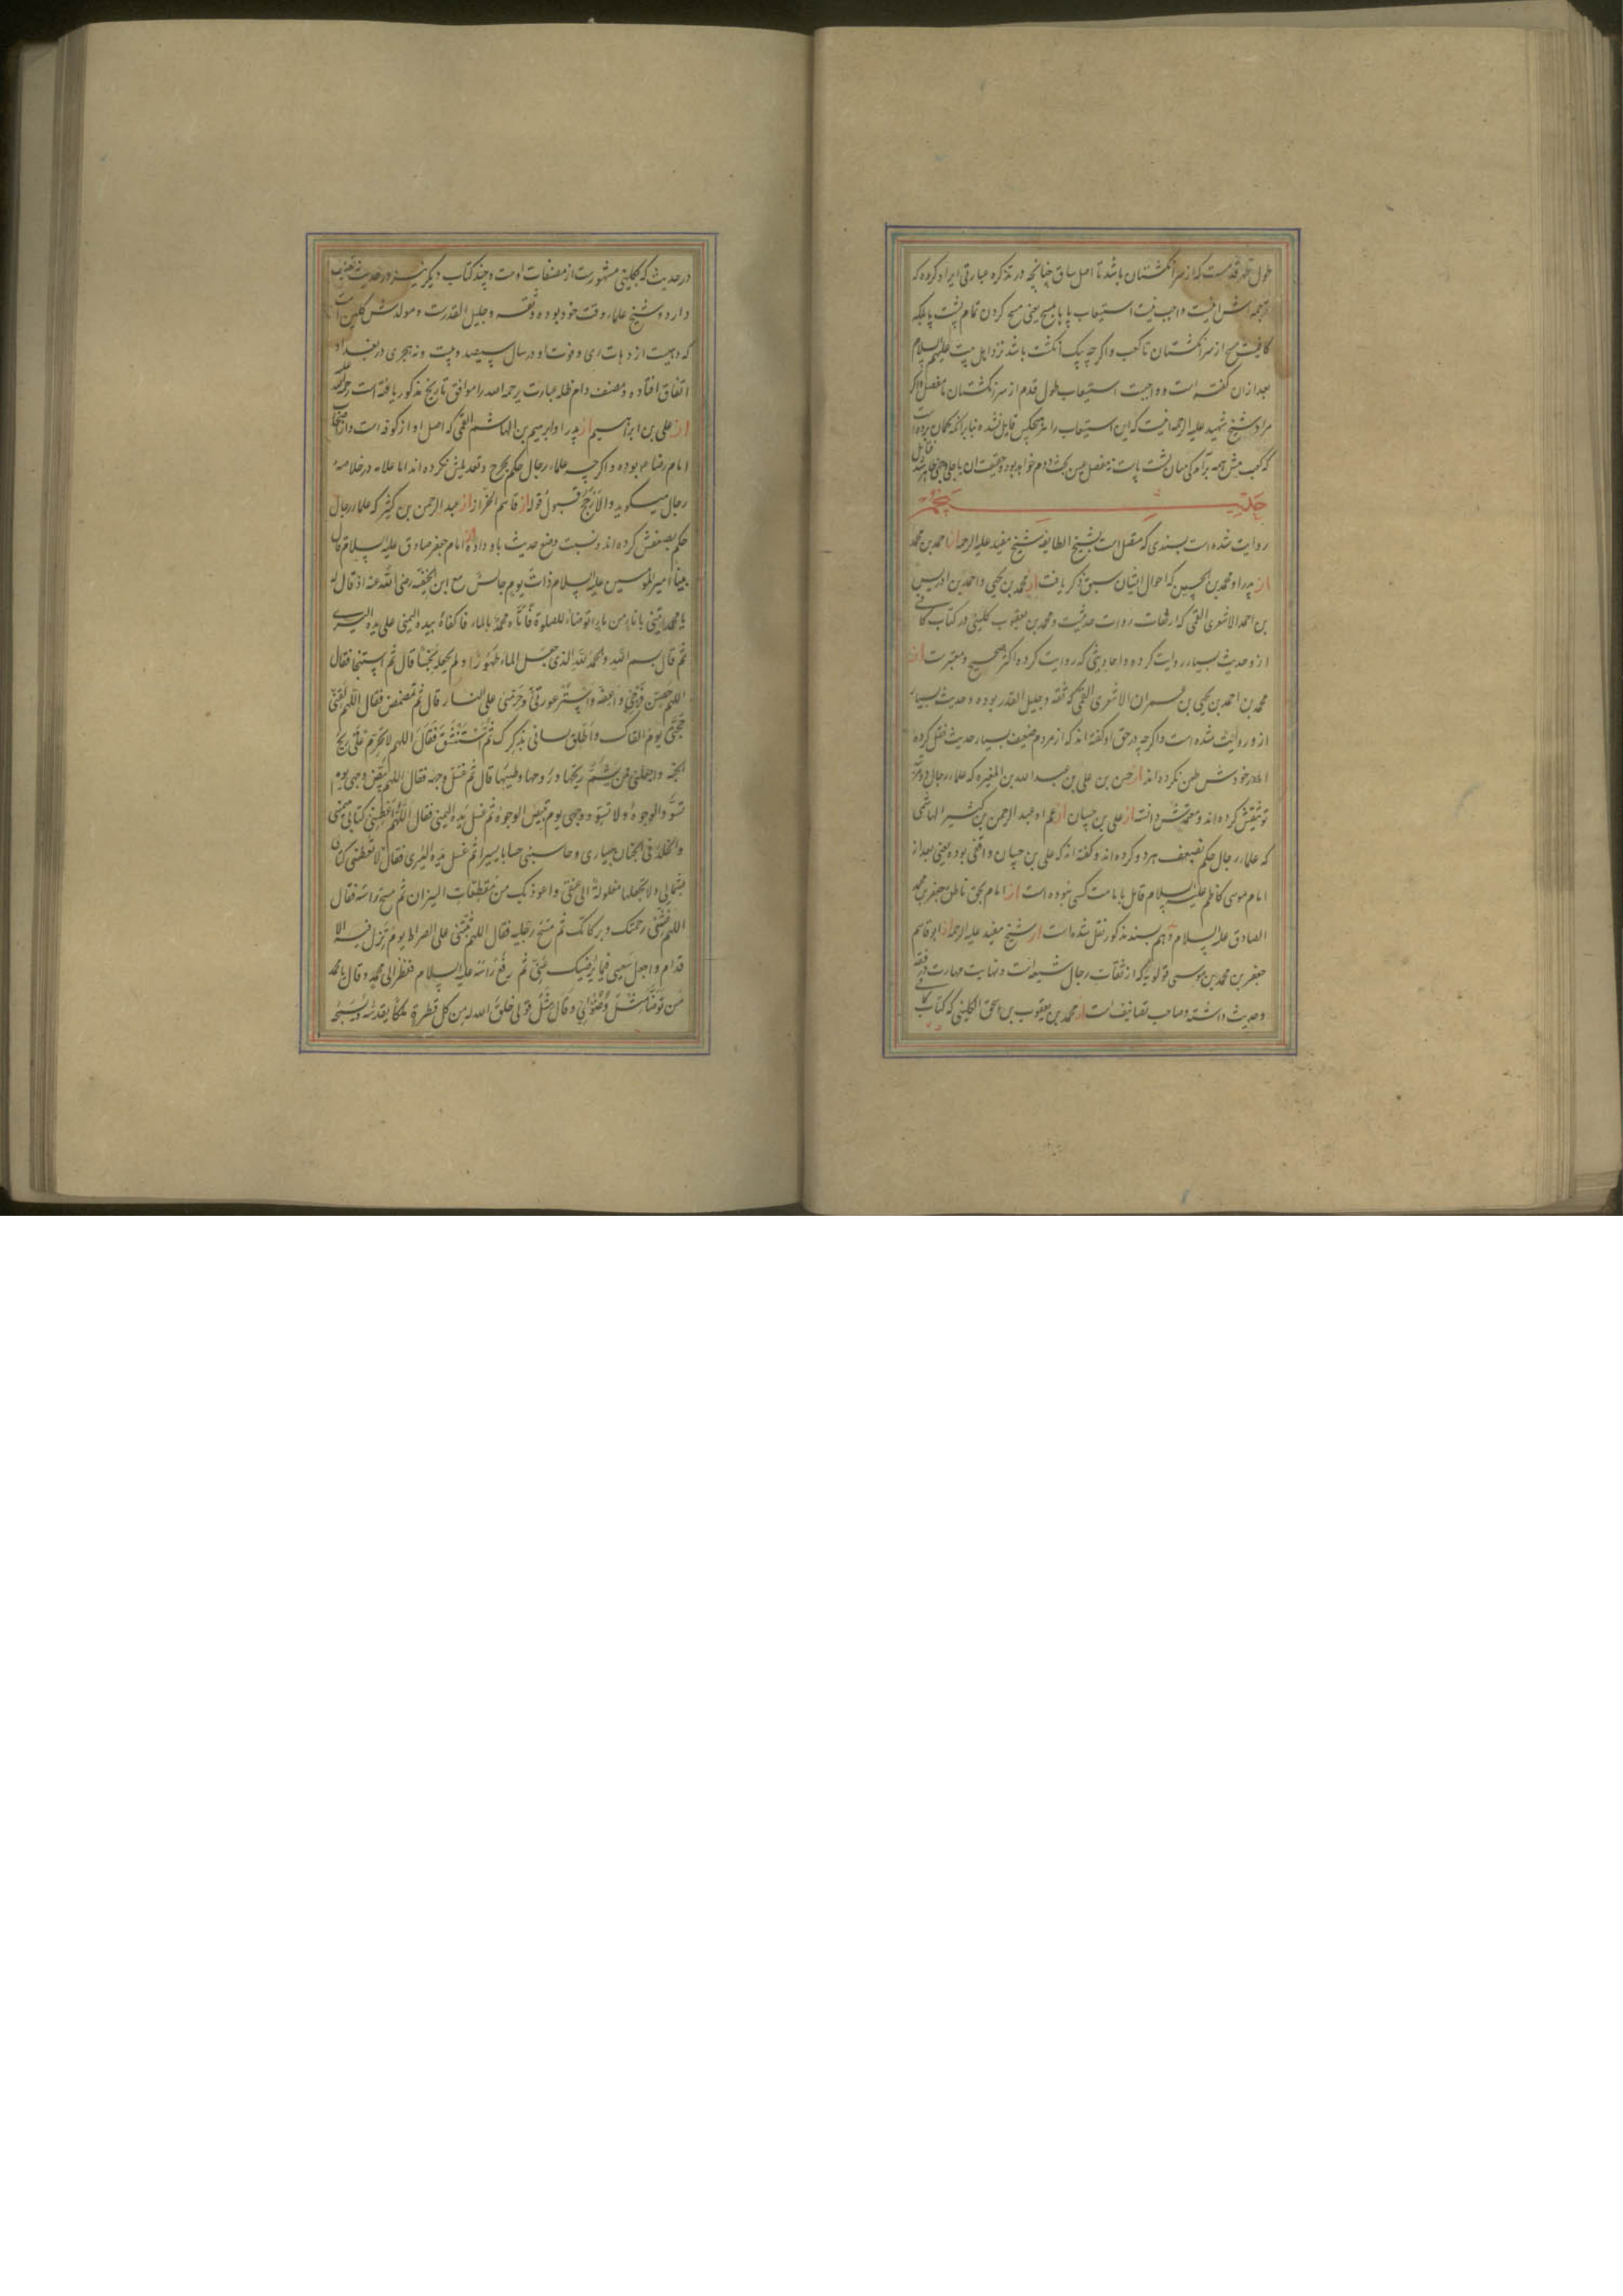 طول ظهر قدمست که از سر انگشتان باشد تا اصل ساق چنانچه در تذکره عبارتی ایراد کرده که
ترجمه اش اینست واجب نیست استیعاب پا بمسح یعنی مسح کردن تمام پشت پا بلکه
کافیست مسح از سر انگشتان تا کعب و اگر چه بیک انگشت باشد نزد اهل بیت علیهم السلام
بعد از ان گفته است و واجبست استیعاب طول قدم از سر انگشتان تا مفصل و اگر
مراد شیخ شهید علیه الرحمه اینست که این استیعاب را هیچکس قایل نشده بنا بر انکه کمان برده است
که کعب پیش همه برآمدگی میان پشت پاست
حدیث پنجم
روایت شده است بسندی که متصل است بشیخ الطایفه شیخ مفید علیه الرحمه از احمد بن محمد
از پدر او محمد بن الحسین که احوال ایشان سبق ذکر یافت از محمد بن یحیی و احمد بن ادریس
بن احمد الاشعری القمی که از ثقات روات حدیثست و محمد بن یعقوب کلینی در کتاب کافی
از و حدیث بسیار روایت کرده و احادیثی که روایت کرده اکثر صحیح و معتبرست از
محمد بن احمد بن یحیی بن عمران الاشعری القمی که ثقه و جلیل القدر بوده و حدیث بسیار
از و روایت شده است و اگر چه در حق او گفته اند که از مردم ضعیف بسیار حدیث نقل کرده
اما در خودش طعن نکرده اند از حسن بن علی بن عبد الله بن المغیره که علماء رجال
توثیقش کرده اند و معتمدش دانسته از علی بن حسان از عم او عبد الرحمن بن کثیر الهاشمی
که علماء رجال حکم بضعف هر دو کرده اند و گفته اند که علی بن حسان واقفی بوده یعنی بعد از
امام موسی کاظم علیه السلام قایل بامامت کسی نبوده است از امام بحق ناطق جعفر بن محمد
الصادق علیه السلام و هم بسند مذکور نقل شده است از شیخ مفید علیه الرحمه از ابو قاسم
جعفر بن محمد بن موسی قولویه که از ثقات رجال شیعه است و نهایت مهارت در فقه
و حدیث داشته و صاحب تصانیف است از محمد بن یعقوب بن اسحق الکلینی که کتاب کافی
در حدیث که بکلینی مشهورست از مصنفات اوست و چند کتاب دیگر نیز در حدیث تصنیف
دارد و شیخ علماء وقت خود بوده و ثقه و جلیل القدرست و مولدش کلین است
که دهیست از دهات ری و فوت او در سال سیصد و بیست و نه هجری در بغداد
اتفاق افتاده و مصنف دام ظله عبارت یرحمه الله را موافق تاریخ مذکور یافته است
از علی بن ابراهیم از پدر او ابرهیم بن الهاشم القمی که اصل او از کوفه است و از اصحاب
امام رضا ع بوده و اگر چه علماء رجال حکم بجرح و تعدیلش نکرده اند اما علامه در خلاصه
رجال میگوید و الارجح قبول قوله از قاسم الخزاز از عبد الرحمن بن کثیر که علماء رجال
حکم بضعفش کرده اند و نسبت وضع حدیث باو داده از امام جعفر صادق علیه السلام قال
بینا امیر المومنین علیه السلام ذات یوم جالس مع ابن الحنفیه رضی الله عنه اذ قال له
یا محمد ایتنی باناء من ماء اتوضاء للصلوة فاتاه محمد بالماء فاکفاه بیده الیمنی علی یده الیسری
ثم قال بسم الله و الحمد لله الذی جعل الماء طهورا و لم یجعله نجسا قال ثم استنجا فقال
اللهم حصن فرجی و اعفه و استر عورتی و حرمنی علی النار قال ثم تمضمض فقال اللهم لقنی
حجتی یوم القاک و اطلق لسانی بذکرک ثم استنشق فقال اللهم لا تحرم علی ریح
الجنه و اجعلنی ممن یشم ریحها و روحها و طیبها قال ثم غسل وجهه فقال اللهم بیض وجهی یوم
تسود الوجوه و لا تسود وجهی یوم تبیض الوجوه ثم غسل یده الیمنی فقال اللهم اعطنی کتابی بیمینی
و الخلد فی الجنان بیساری و حاسبنی حسابا یسیرا ثم غسل یده الیسری فقال لا تعطنی کتابی
بشمالی و لا تجعلها مغلولة الی عنقی و اعوذ بک من مقطعات النیران ثم مسح راسه فقال
اللهم غشنی رحمتک و برکاتک ثم مسح رجلیه فقال اللهم ثبتنی علی الصراط یوم تزل فیه الا
قدام و اجعل سعیی فیما یرضیک عنی ثم رفع راسه علیه السلام فنظر الی محمد و قال یا محمد
من توضا مثل وضوئی و قال مثل قولی خلق الله له من کل قطرة ملکا یقدسه و یسبحه